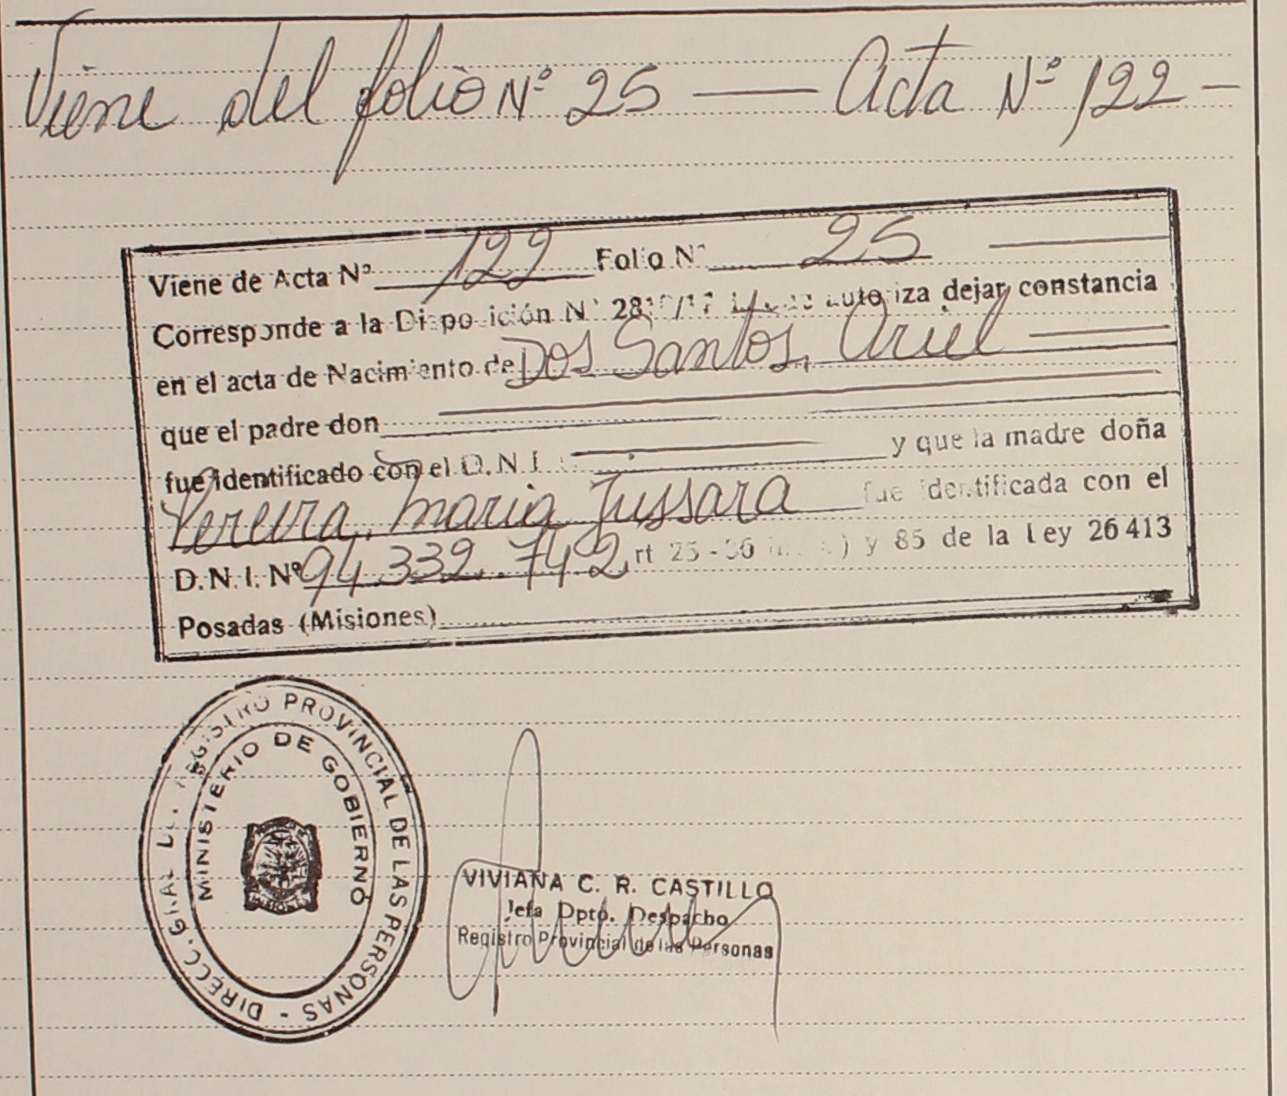 Viene del folio Nº 25 — Acta Nº 122 -
Viene de Acta Nº 122 Folio Nº 25
Corresponde a la Disposición Nº autoriza dejar constancia
en el acta de Nacimiento de Dos Santos, Ariel
que el padre don
fue identificado con el D.N.I. y que la madre doña
Pereira, Maria Jussara fue identificada con el
D.N.I. Nº 94.339.742 rt 25 - y 85 de la Ley 26413
Posadas (Misiones)
DIRECC. GRAL DE REGISTRO PROVINCIAL DE LAS PERSONAS -
MINISTERIO DE GOBIERNO
VIVIANA C. R. CASTILLO
Jefa Dpto. Despacho
Registro Provincial de las Personas